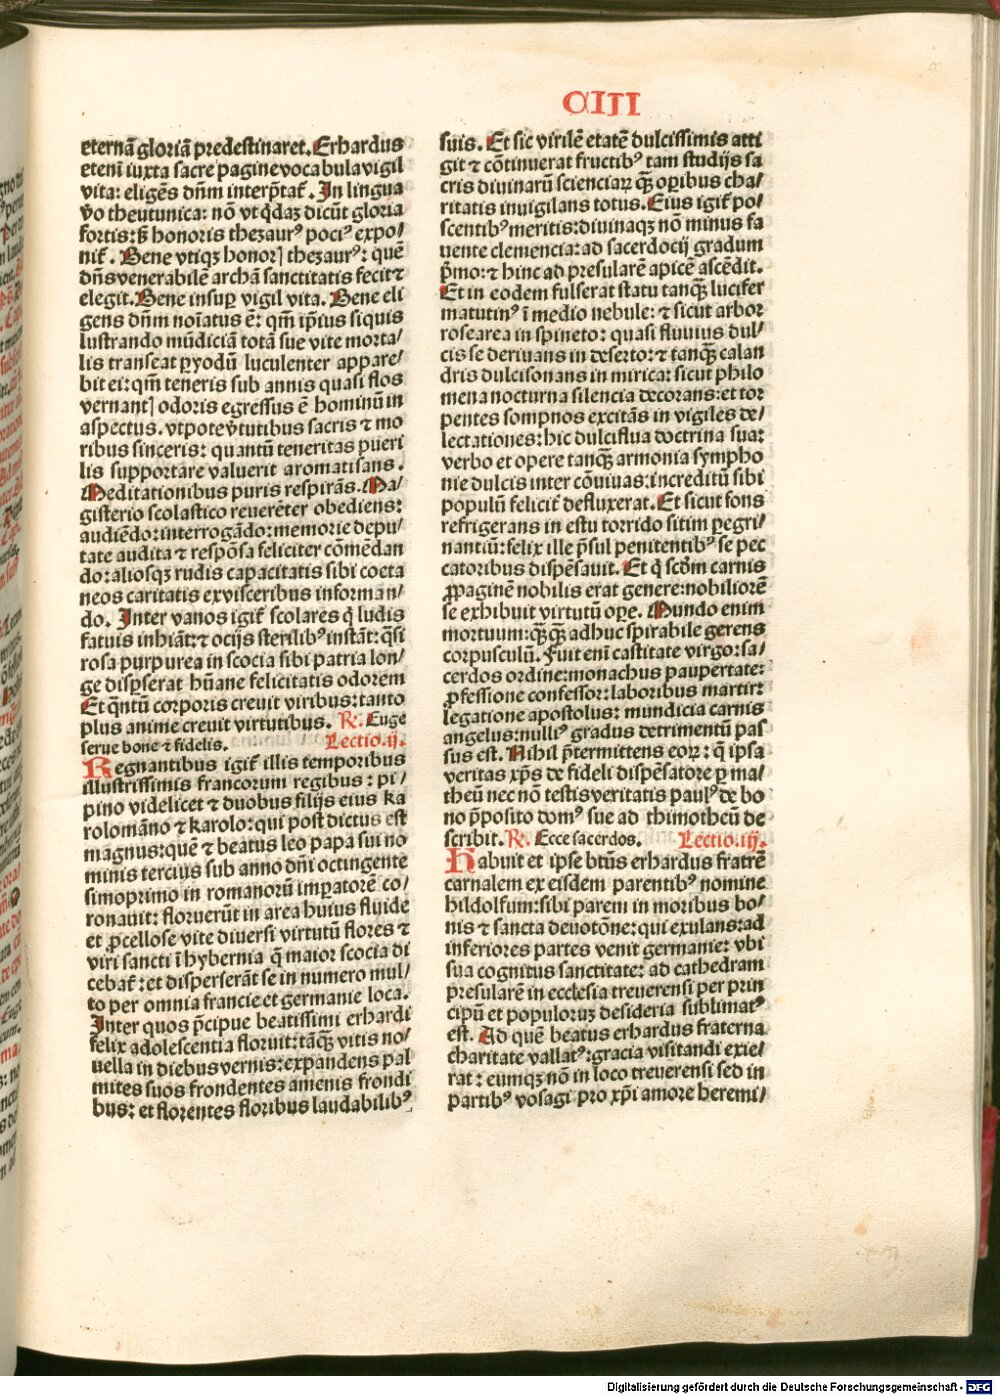 CIII
eternã gloriã predestinaret. Erhardus
etenĩ iuxta sacre pagine vocabula vigil
vita: eligẽs dñm interp̃tat̃. In lingua
ṽo theutunica: nõ vt q̃daꝫ dicũt gloria
fortis: sꝫ honoris thezaurꝰ pociꝰ expo⸗
nit̃. Bene vtiqꝫ honorꝭ thezaurꝰ: quẽ
dñs venerabilẽ archã sanctitatis fecit ⁊
elegit. Bene insuꝑ vigil vita. Bene eli
gens dñm noĩatus ẽ: qm̃ ip̃ius siquis
lustrando mũdiciã totã sue vite morta⸗
lis transeat ꝑyodũ luculenter appare⸗
bit ei: qm̃ teneris sub annis quasi flos
vernantꝭ odoris egressus ẽ hominũ in
aspectus. vtpote ṽtutibus sacris ⁊ mo
ribus sinceris: quantũ teneritas pueri
lis supportare valuerit aromatisans.
Meditationibus puris respirãs. Ma⸗
gisterio scolastico reuerẽter obediens:
audiẽdo: interrogãdo: memorie depu⸗
tate audita ⁊ respõsa feliciter cõmẽdan
do: aliosqꝫ rudis capacitatis sibi coeta
neos caritatis ex visceribus informan⸗
do. Inter vanos igit̃ scolares q̃ ludis
fatuis inhiãt: ⁊ ocijs sterilibꝰ instãt: q̃si
rosa purpurea in scocia sibi patria lon⸗
ge disꝑserat hũane felicitatis odorem
Et q̃ntũ corporis creuit viribus: tanto
plus anime creuit virtutibus. R. Euge
serue bone ⁊ fidelis. Lectio.ij.
Regnantibus igit̃ illis temporibus
illustrissimis francorum regibus: pi⸗
pino videlicet ⁊ duobus filijs eius ka
rolomãno ⁊ karolo: qui post dictus est
magnus: quẽ ⁊ beatus leo papa sui no
minis tercius sub anno dñi octingente
simoprimo in romanorũ imꝑatorẽ co⸗
ronauit: floruerũt in area huius fluide
et ꝓcellose vite diuersi virtutũ flores ⁊
viri sancti ĩ hybernia q̃ maior scocia di
cebat̃: et disperserãt se in numero mul⸗
to per omnia francie et germanie loca.
Inter quos p̃cipue beatissimi erhardi
felix adolescentia floruit: tãqꝫ vitis no⸗
uella in diebus vernis: expandens pal
mites suos frondentes amenis frondi
bus: et florentes floribus laudabilibꝰ
suis. Et sic virilẽ etatẽ dulcissimis atti
git ⁊ cõtinuerat fructibꝰ tam studijs sa
cris diuinarũ scienciaꝝ qꝫ̃ oꝑibus cha⸗
ritatis inuigilans totus. Eius igit̃ po⸗
scentibꝰ meritis: diuinaqꝫ nõ minus fa
uente clemencia: ad sacerdocij gradum
p̃mo: ⁊ hinc ad presularẽ apicẽ ascẽdit.
Et in eodem fulserat statu tanqꝫ̃ lucifer
matutinꝰ ĩ medio nebule: ⁊ sicut arbor
rosearea in spineto: quasi fluuius dul⸗
cis se deriuans in deserto: ⁊ tanqꝫ̃ calan
dris dulcisonans in mirica: sicut philo
mena nocturna silencia decorans: et tor
pentes sompnos excitãs in vigiles de⸗
lectationes: hic dulciflua doctrina sua:
verbo et opere tanqꝫ̃ armonia sympho
nie dulcis inter cõuiuas: increditũ sibi
populũ felicit̃ defluxerat. Et sicut fons
refrigerans in estu torrido sitim ꝑegri⸗
nantiũ: felix ille p̃sul penitentibꝰ se pec
catoribus dispẽsauit. Et q̃ scd̃m carnis
ꝓpaginẽ nobilis erat genere: nobiliorẽ
se exhibuit virtutũ oꝑe. Mundo enim
mortuum: qꝫ̃qꝫ̃ adhuc spirabile gerens
corpusculũ. Fuit enĩ castitate virgo: sa⸗
cerdos ordine: monachus paupertate:
ꝓfessione confessor: laboribus martir:
legatione apostolus: mundicia carnis
angelus: nulliꝰ gradus detrimentũ pas
sus est. Nihil p̃termittens eoꝝ: q̃ ipsa
veritas xp̃s de fideli dispẽsatore ꝑ ma⸗
theũ nec nõ testis veritatis paulꝰ de bo
no p̃posito domꝰ sue ad thimotheũ de
scribit. R. Ecce sacerdos. Lectio.iij.
Habuit et ipse btũs erhardus fratrẽ
carnalem ex eisdem parentibꝰ nomine
hildolfum: sibi parem in moribus bo⸗
nis ⁊ sancta deuotõne: qui exulans: ad
inferiores partes venit germanie: vbi
sua cognitus sanctitate: ad cathedram
p̃sularẽ in ecclesia treuerensi per prin
cipũ et populoruꝫ desideria sublimatꝰ
est. Ad quẽ beatus erhardus fraterna
charitate vallatꝰ: gracia visitandi exie⸗
rat: eumqꝫ nõ in loco treuerensi sed in
partibꝰ vosagi pro xp̃i amore heremi⸗
Digitalisierung gefördert durch die Deutsche Forschungsgemeinschaft - DFG